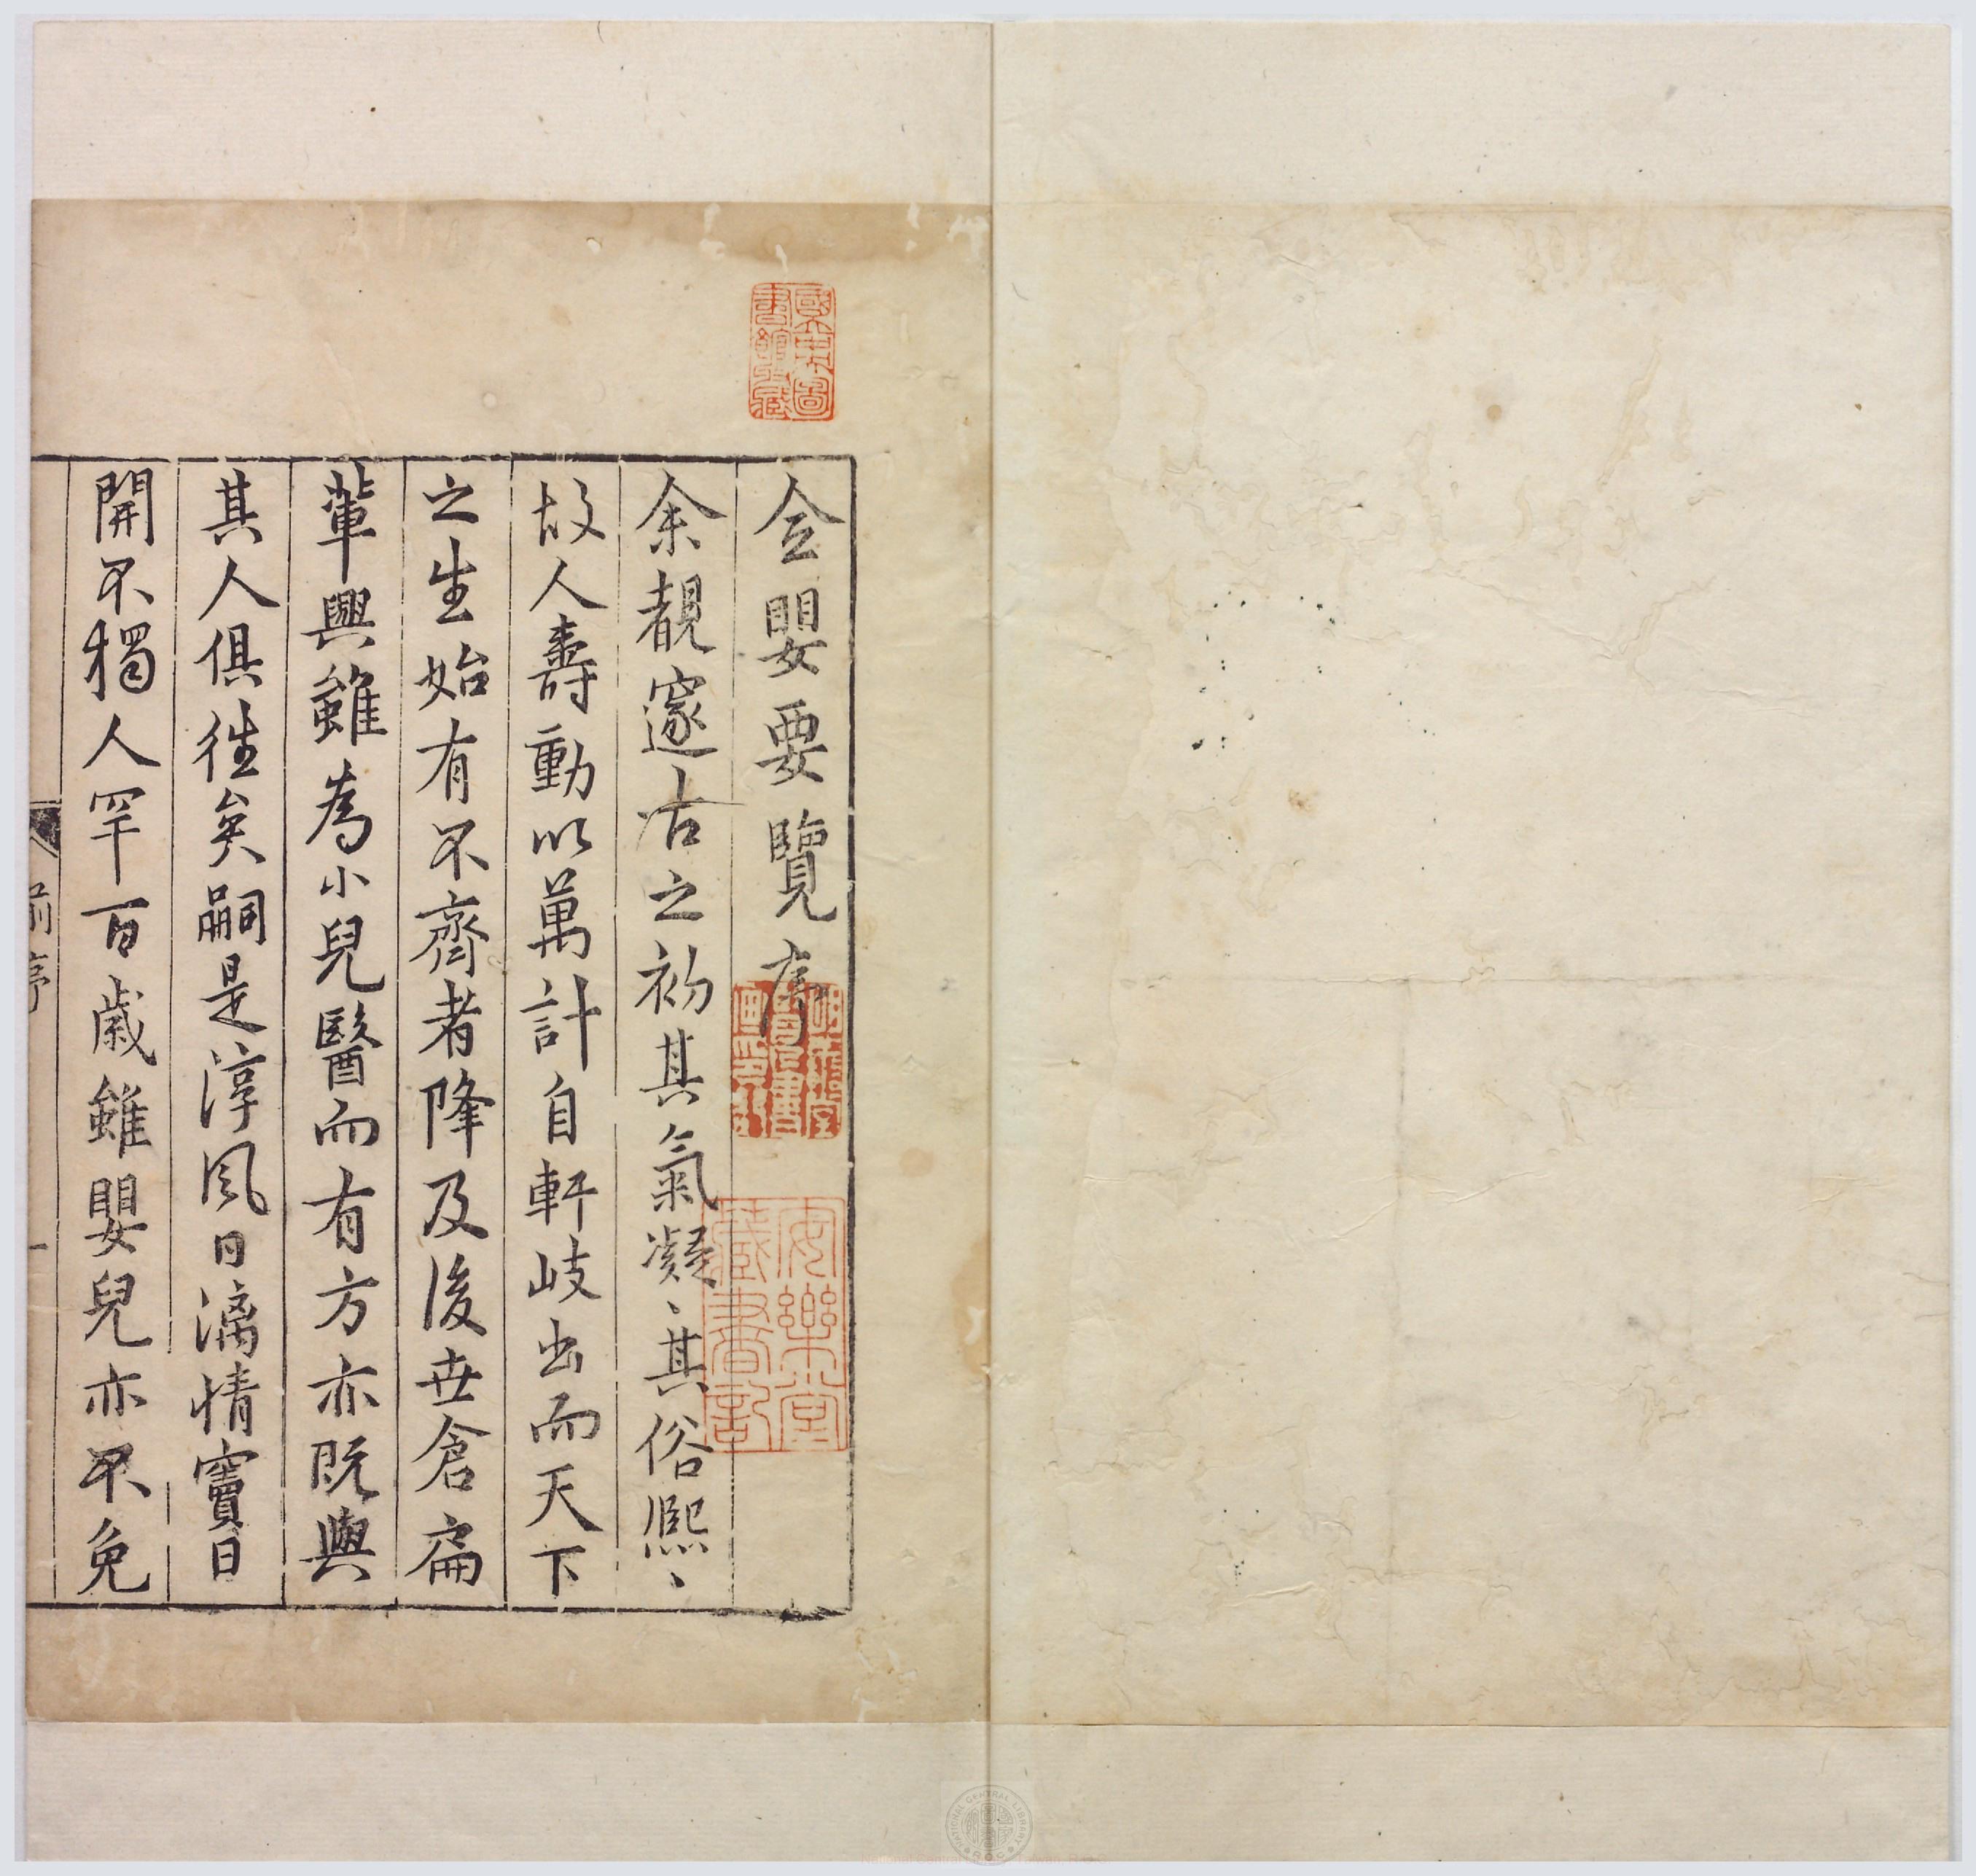 全嬰要覽序
余覩邃古之初其氣凝〻其俗熙〻
故人壽動以萬計自軒岐出而天下
之生始有不齊者降及後世倉扁
輩興雖為小兒醫而有方亦既與
其人俱徃矣嗣是淳風日漓情竇日
開不獨人罕百歲雖嬰兒亦不免
前序
一
國立中央圖書館藏
安樂堂藏書記
NATIONAL CENTRAL LIBRARY R.O.C